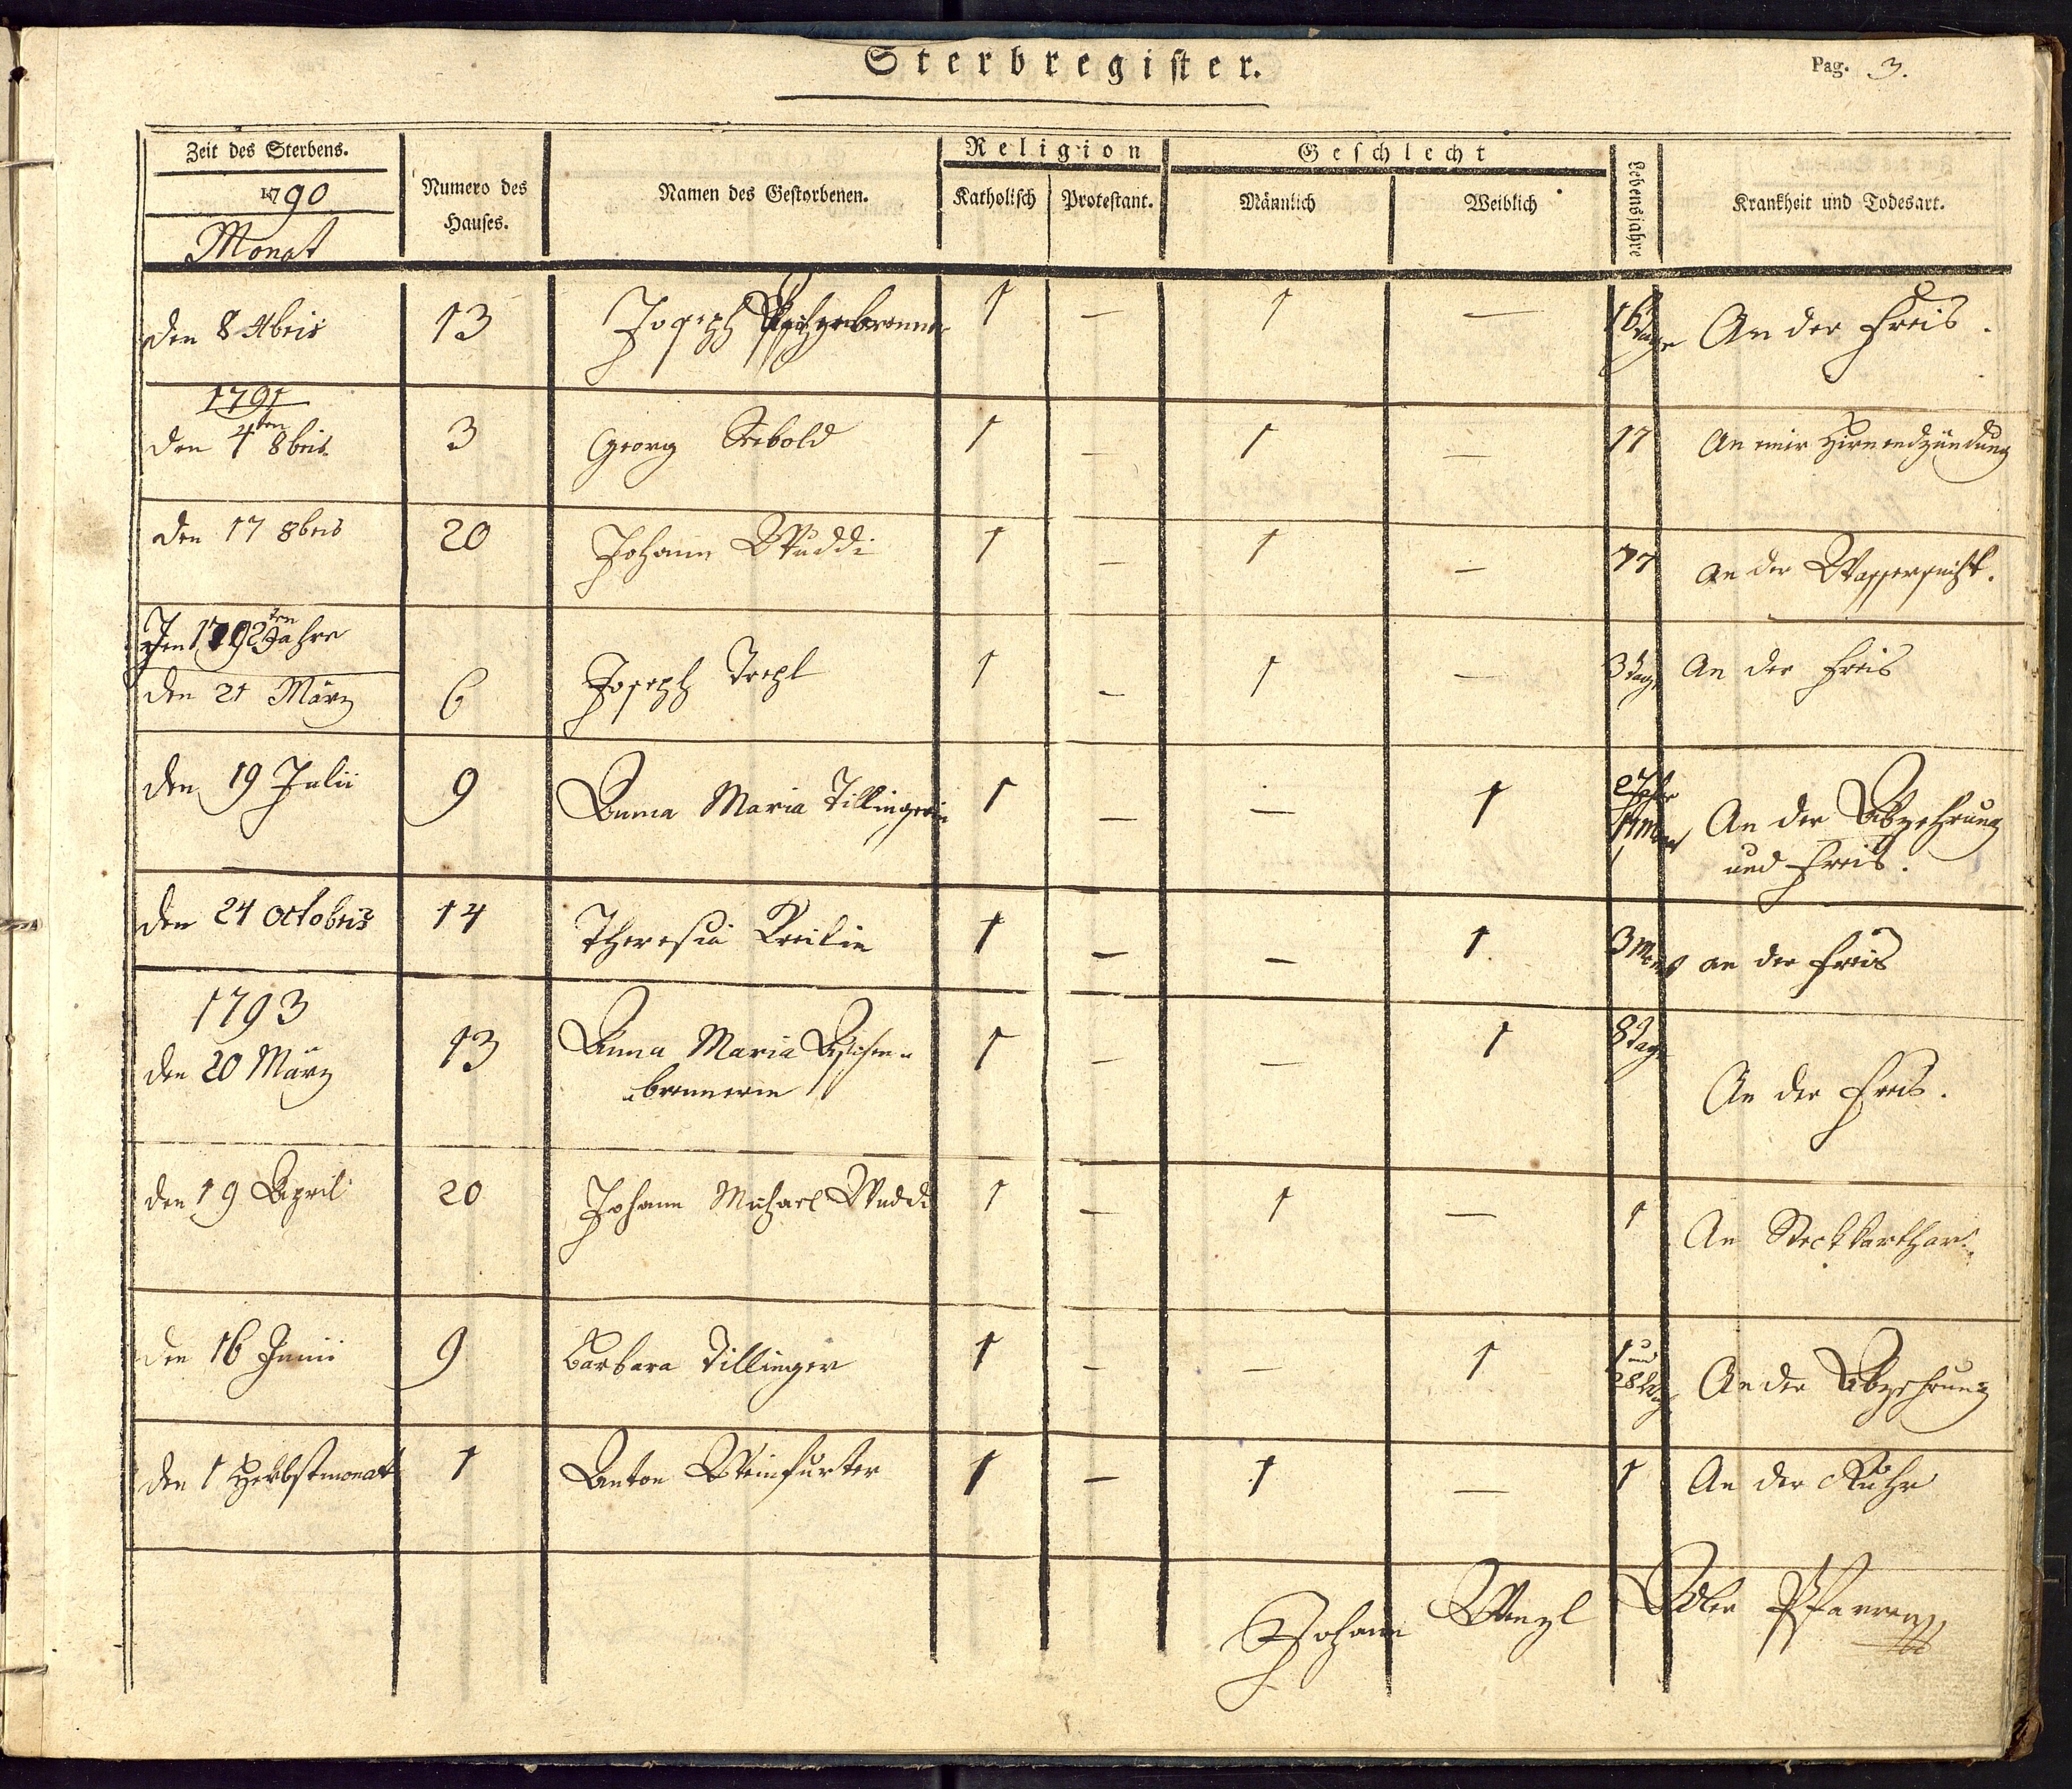 Sterbregister.
Pag. 3.
Zeit des Sterbens. 1790 Monat
Numero des Hauses.
Namen des Gestorbenen.
Religion
Katholisch Protestant.
Geschlecht
Männlich Weiblich
Lebensjahre
Krankheit und Todesart.
den 8 13 Joseph 1 — 1 — 16 Tage An der Freis.
1791
den 4ten 8bris. 3 Georg Seebold 1 — 1 — 17 An einer Hirnendzündung
den 17 8bris 20 Johann Wuddi 1 — 1 — 77 An der Wassersucht.
Im 1792ten Jahre
den 21 März 6 Joseph Trepl 1 — 1 — 3 Tage An der Freis
den 19 Julii 9 Anna Maria Tillingerin 1 — — 1 2 Jahr An der Abzehrung
und Freis.
den 24 Octobris 14 Theresia 1 — — 1 3 Monat an der Freis
1793
den 20 März 13 Anna Maria 1 — — 1 8 Tage An der Freis.
brennerin
den 19 April 20 Johann Michael Wuddi 1 — 1 — 1 An Steckkarthar
den 16 Junii 9 Barbara Tillinger 1 — — 1 1 und 28 Tag An der Abzehrung
den 1 Herbstmonat 1 Anton Weinfurter 1 — 1 — 1 An der Ruhr
Johann Wenzl Adler Pfarrer